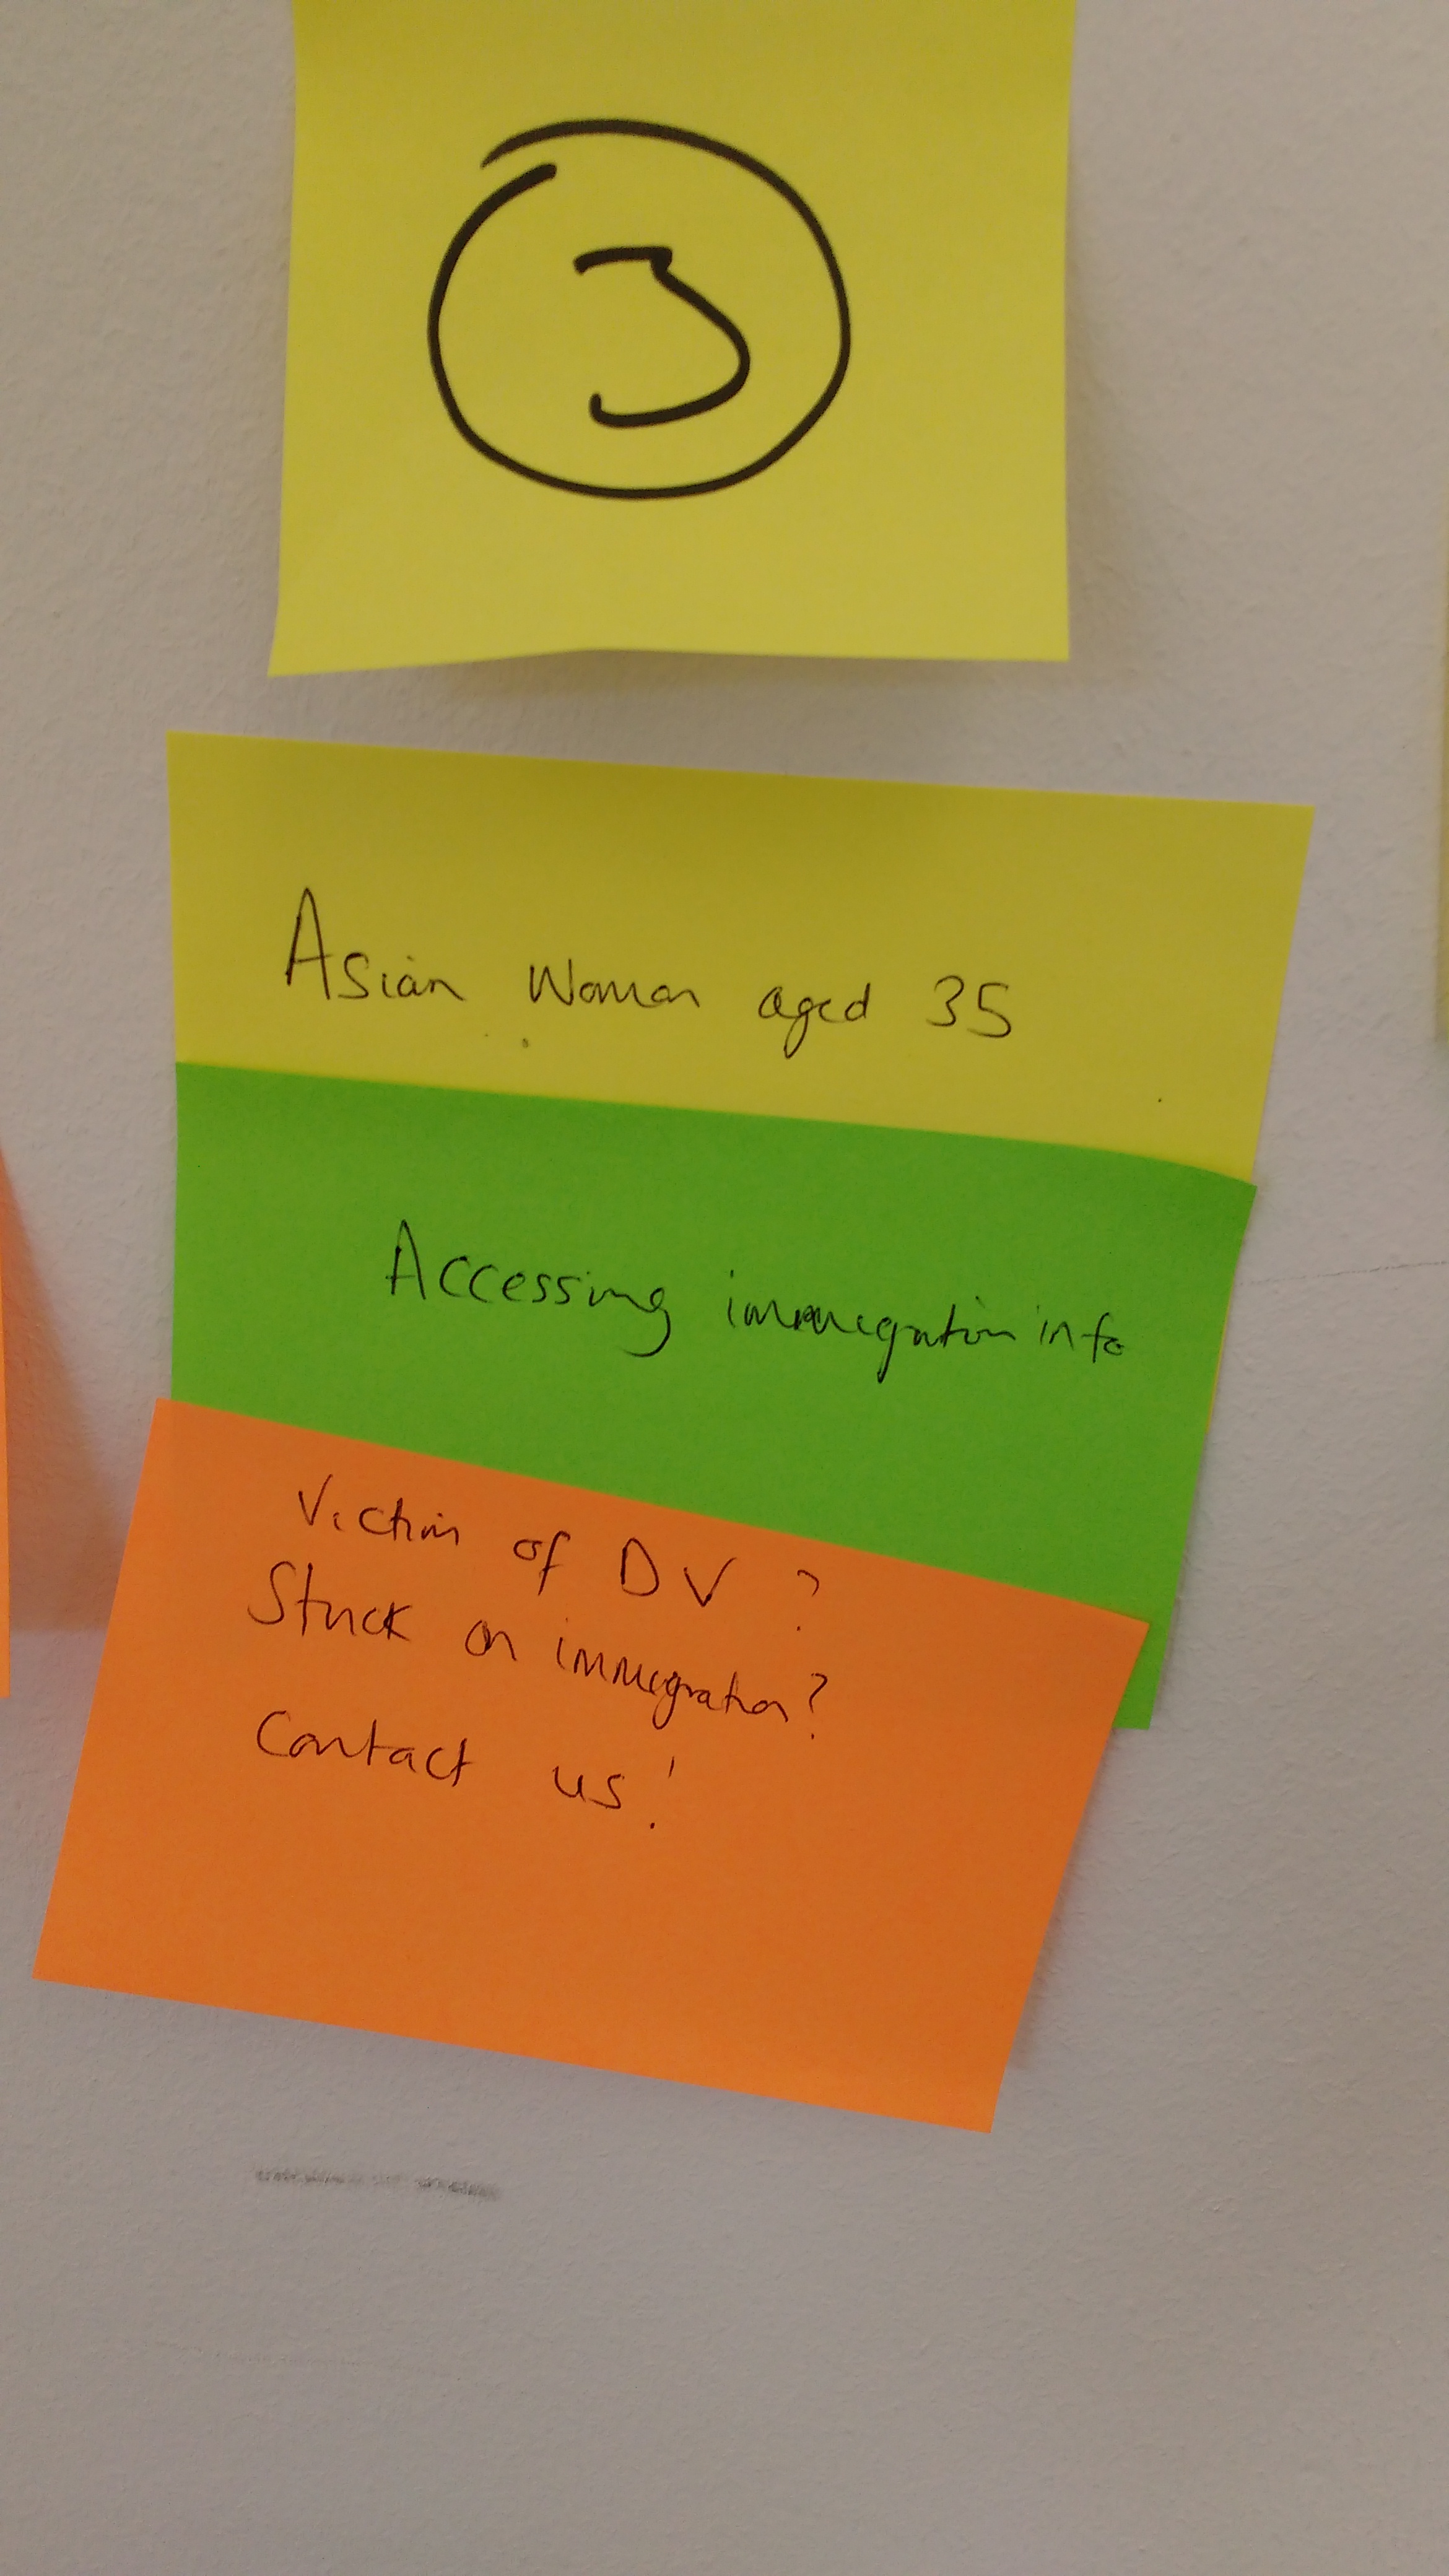 3
Asian Woman aged 35
Accessing immegration info
Victim of DV ?
Stuck on immegration?
Contact us!